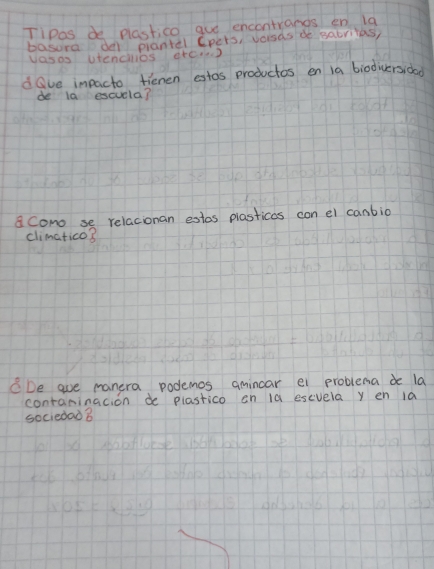 Tipos de plastico que encontramos en la
basura del plantel (pets, bolsas de sabritas,
vasos utencilios etc...)
¿Que impacto tienen estos productos en la biodiversidad
de la escuela?
¿Como se relacionan estos plasticos con el canbio
climatico?
¿De que manera podemos aminoar el problema de la
contaminación de plastico en la escuela y en la
sociedad?